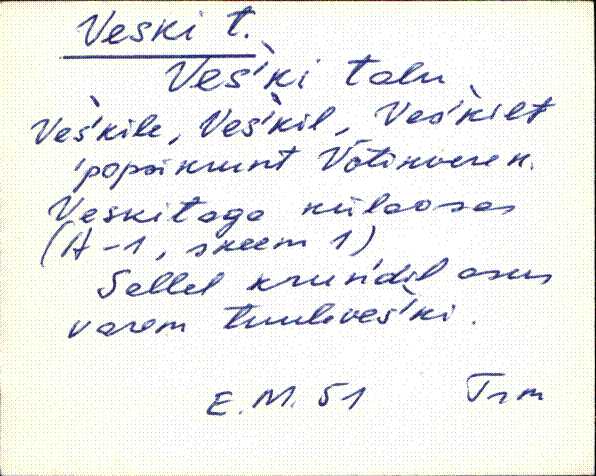 Veski t.
Veśki talu
Veśkile, Veśkil, Veśkilt
popsikrunt Võtikvere k.
Veskitaga külaosas
(A-1, skeem 1)
Sellel kruńdil asus
varem tuuleveśki.
E.M. 51 Trm